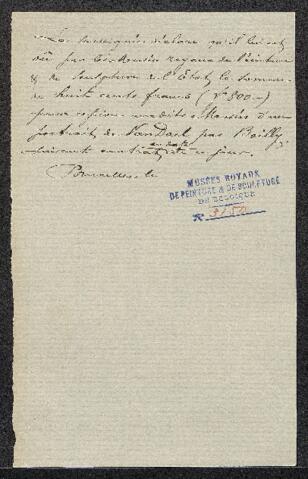 Le soussigné déclare qu'il lui est
dû par les Musées royaux de Peinture
& de Sculpture de l'Etat, la somme
de huit cents francs (Fr 800.-)
pour cession auxdits Musées d'un
portrait de Van Dael par Boilly
suivant contrat en date de ce jour.
Bruxelles, le
MUSÉES ROYAUX
DE PEINTURE & DE SCULPTURE
DE BELGIQUE